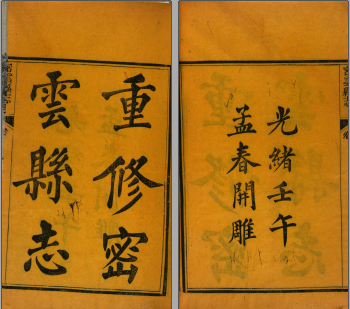 重修密
雲縣志
光緒壬午
孟春開雕